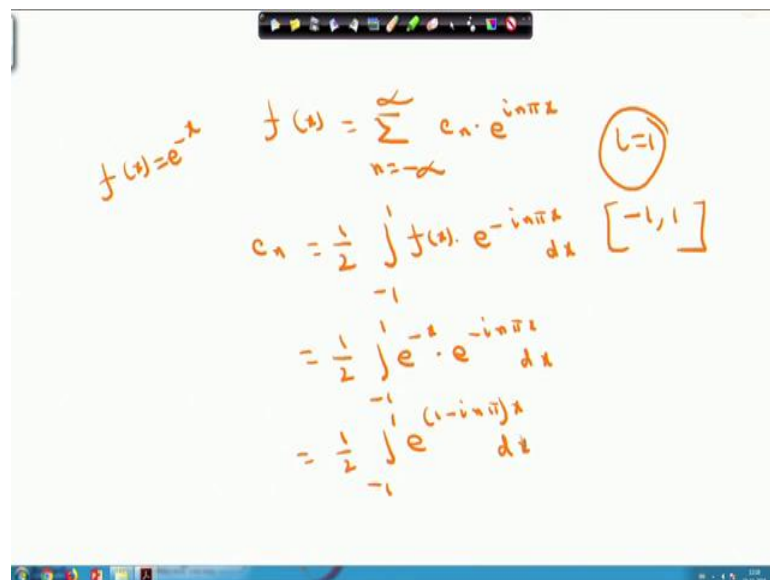 f(x) = e^{-x}
f(x) = \sum_{n=-\infty}^{\infty} c_n \cdot e^{in\pi x}
l=1
c_n = \frac{1}{2} \int_{-1}^{1} f(x) \cdot e^{-in\pi x} dx [-1, 1]
= \frac{1}{2} \int_{-1}^{1} e^{-x} \cdot e^{-in\pi x} dx
= \frac{1}{2} \int_{-1}^{1} e^{(1-in\pi)x} dx